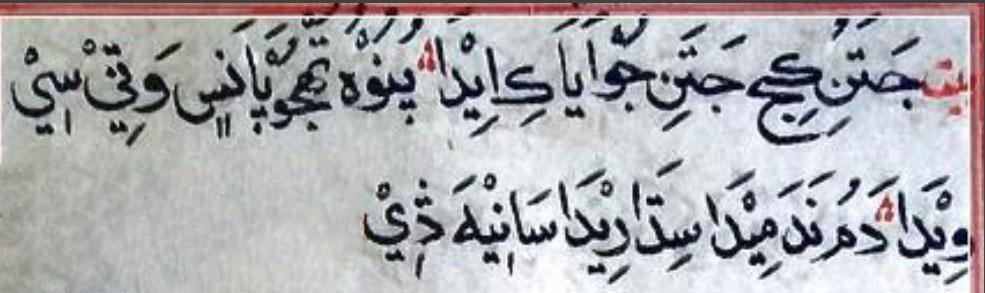 بيت جَتَنِ کِجِ جَتَنِ جُوْ اَيَا کِ اِيْدَا ؞ پُنُوْهْ پَهِجُوْ پَانَسِ وَتِيْ سِيْ
وِيْدَا ؞ دَمُ نَدَمِيْدَا سِدَّارِيْدَا سَانِيْهَ ڎِيْ